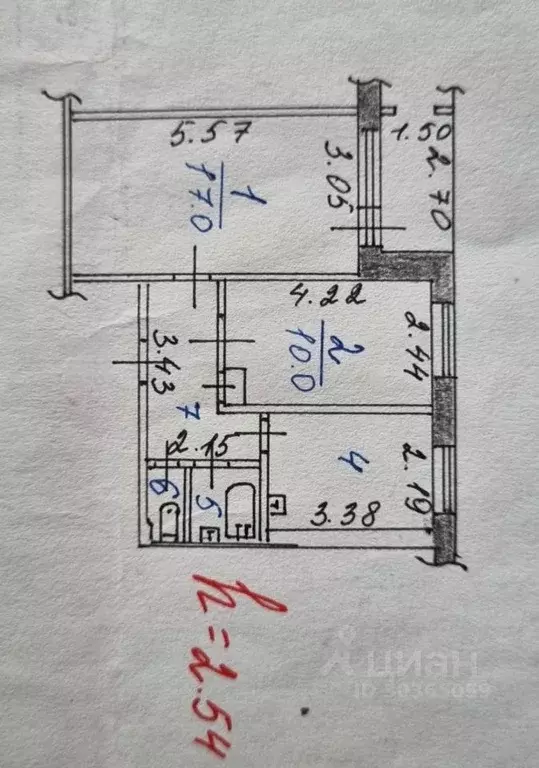 5.57
1.50
2.70
3.05
1
17.0
4.22
2
10.0
2.44
3.43
7
2.15
4
2.19
3.38
6
5
h=2.54